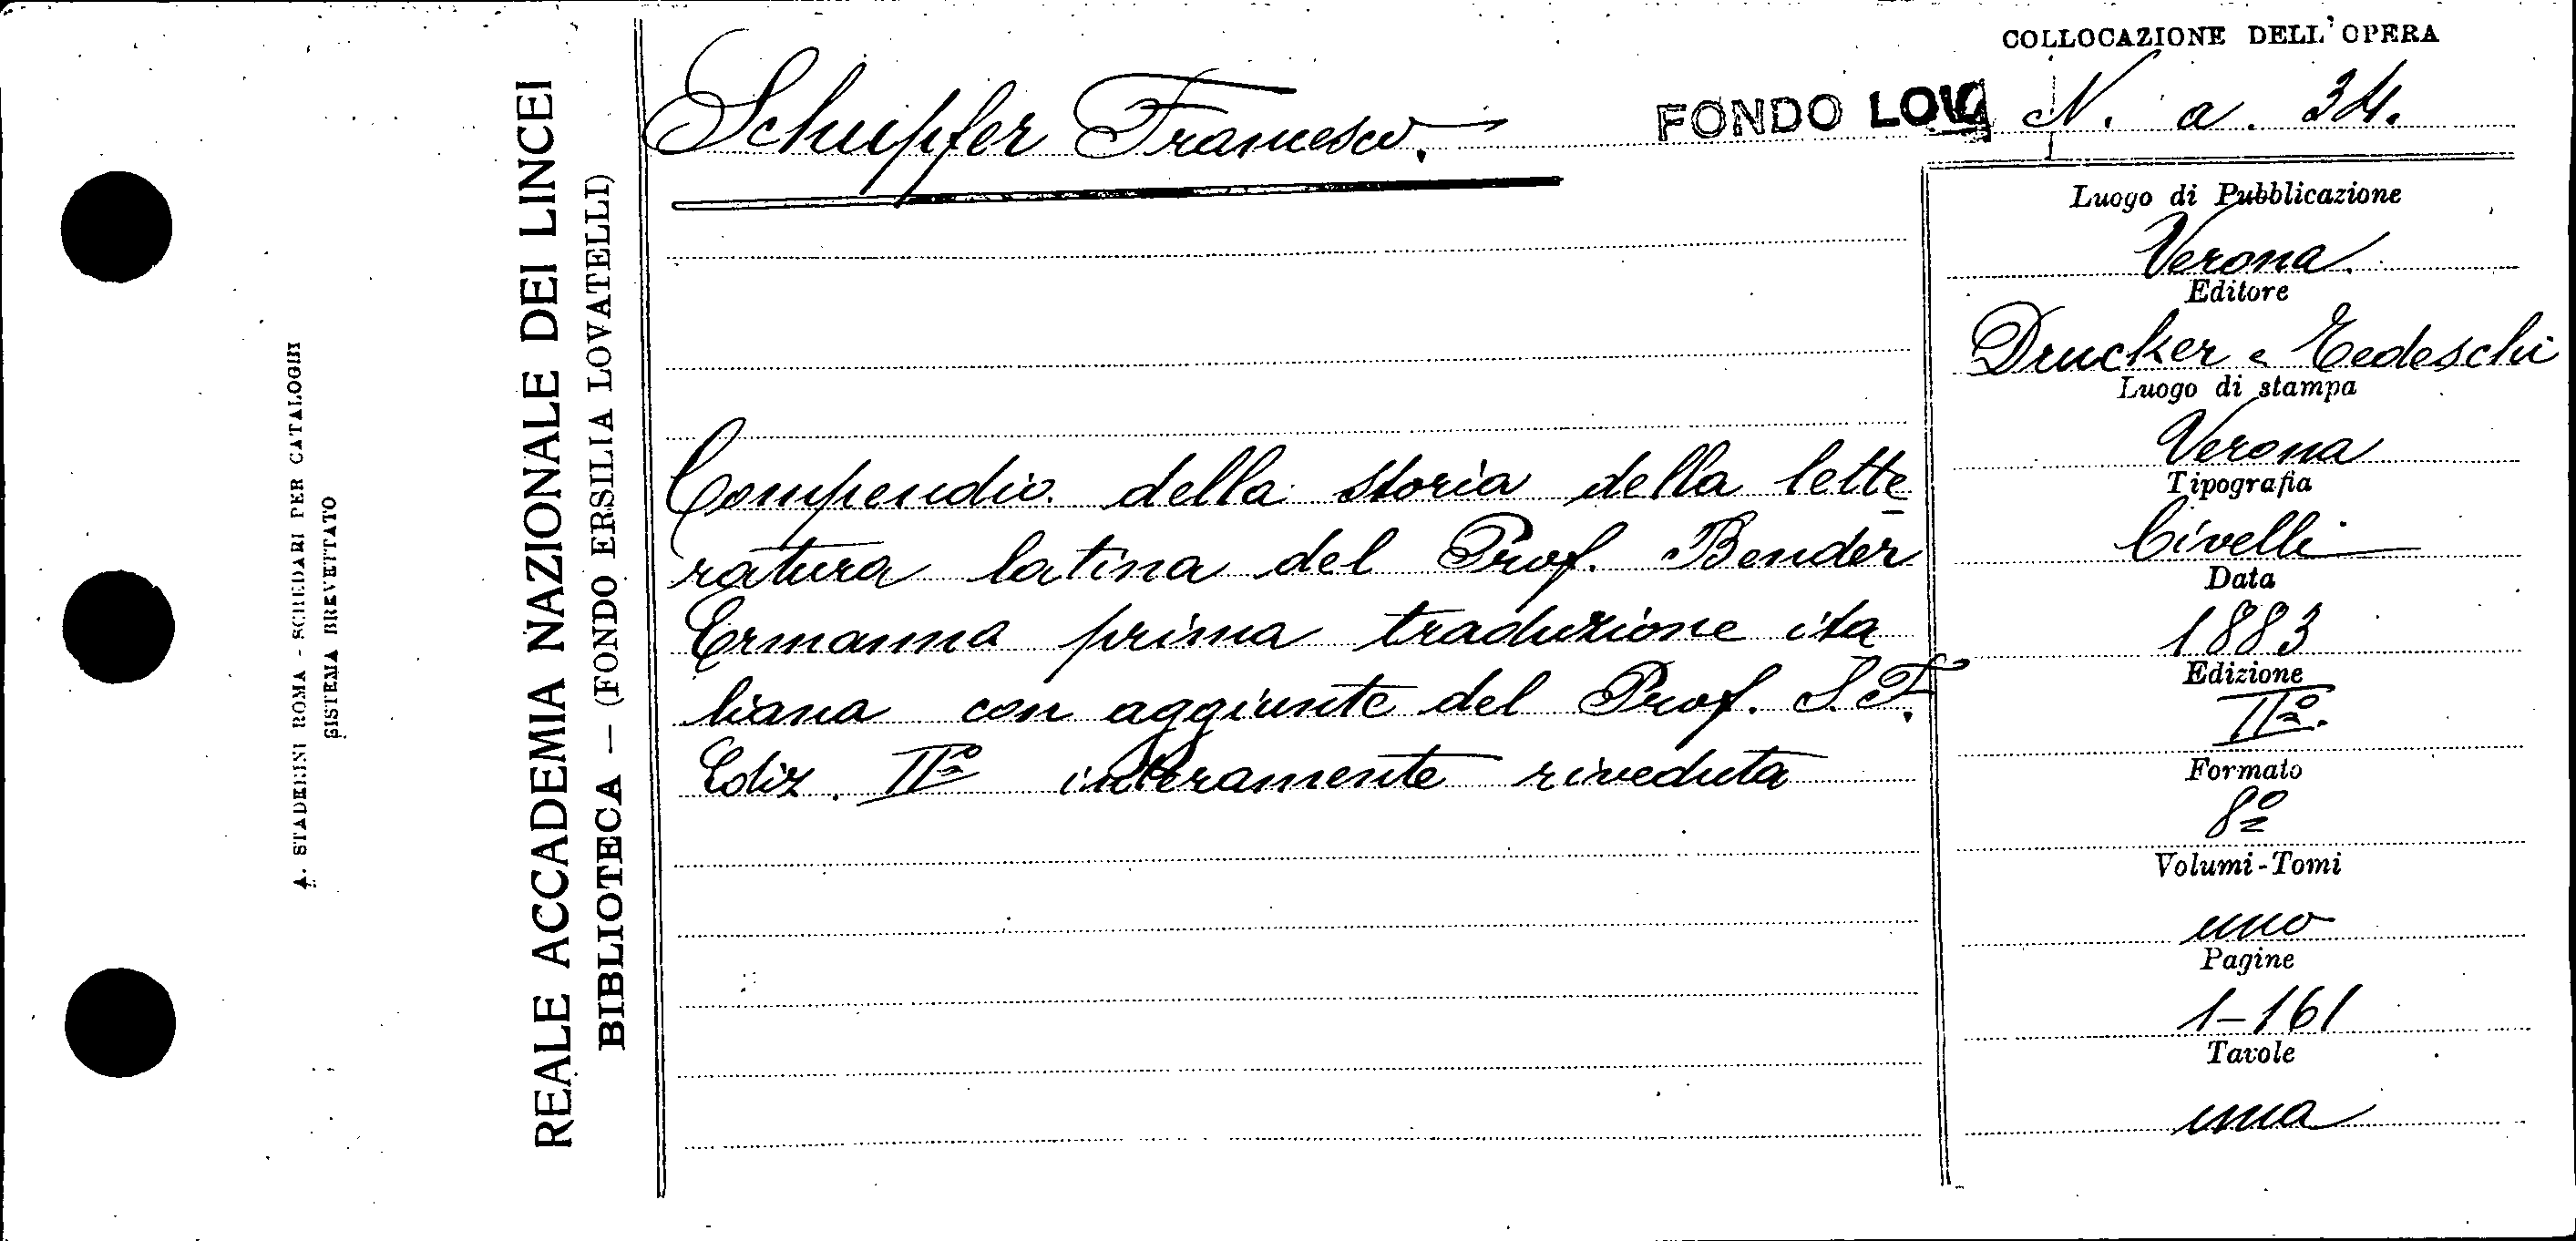 COLLOCAZIONE DELL'OPERA
Schupfer Francesco.
FONDO LOV
N. a. 34.
Compendio della storia della lette
ratura latina del Prof. Bender
Ermanna prima traduzione ita
liana con aggiunte del Prof. S. F.
Ediz. IIª interamente riveduta
Luogo di Pubblicazione
Verona
Editore
Drucker e Tedeschi
Luogo di stampa
Verona
Tipografia
Civelli
Data
1883
Edizione
IIª.
Formato
8º
Volumi-Tomi
uno
Pagine
1-161
Tavole
una
REALE ACCADEMIA NAZIONALE DEI LINCEI
BIBLIOTECA — (FONDO ERSILIA LOVATELLI)
A. STADERINI ROMA - SCHEDARI PER CATALOGHI
SISTEMA BREVETTATO